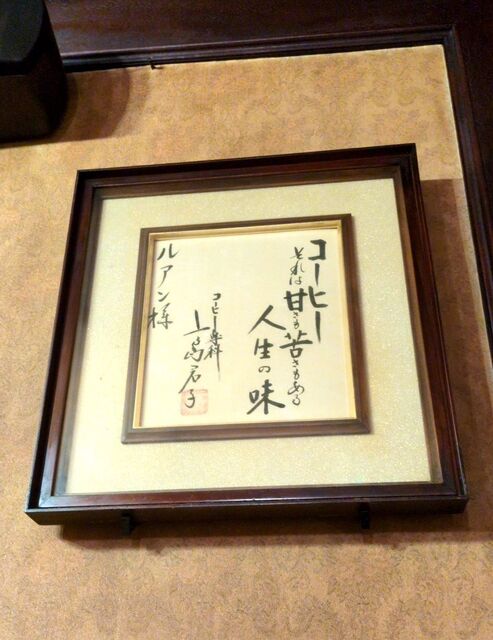 コーヒー
それは甘さも苦さもある
人生の味
コーヒー専科
上島君子
ルアン様